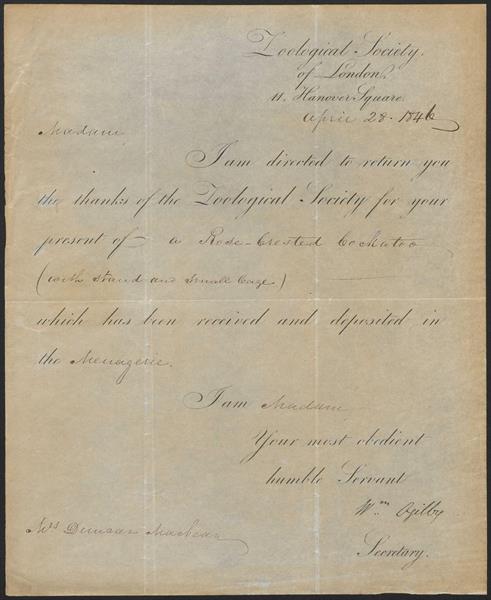 Zoological Society.
of London,
11. Hanover Square.
April 28. 1846
Madam
I am directed to return you
the thanks of the Zoological Society for your
present of a Rose-Crested Cockatoo
(with Stand and Small Cage)
which has been received and deposited in
the Menagerie.
I am Madam
Your most obedient
humble Servant
Wm Ogilby
Secretary.
Mrs Duncan